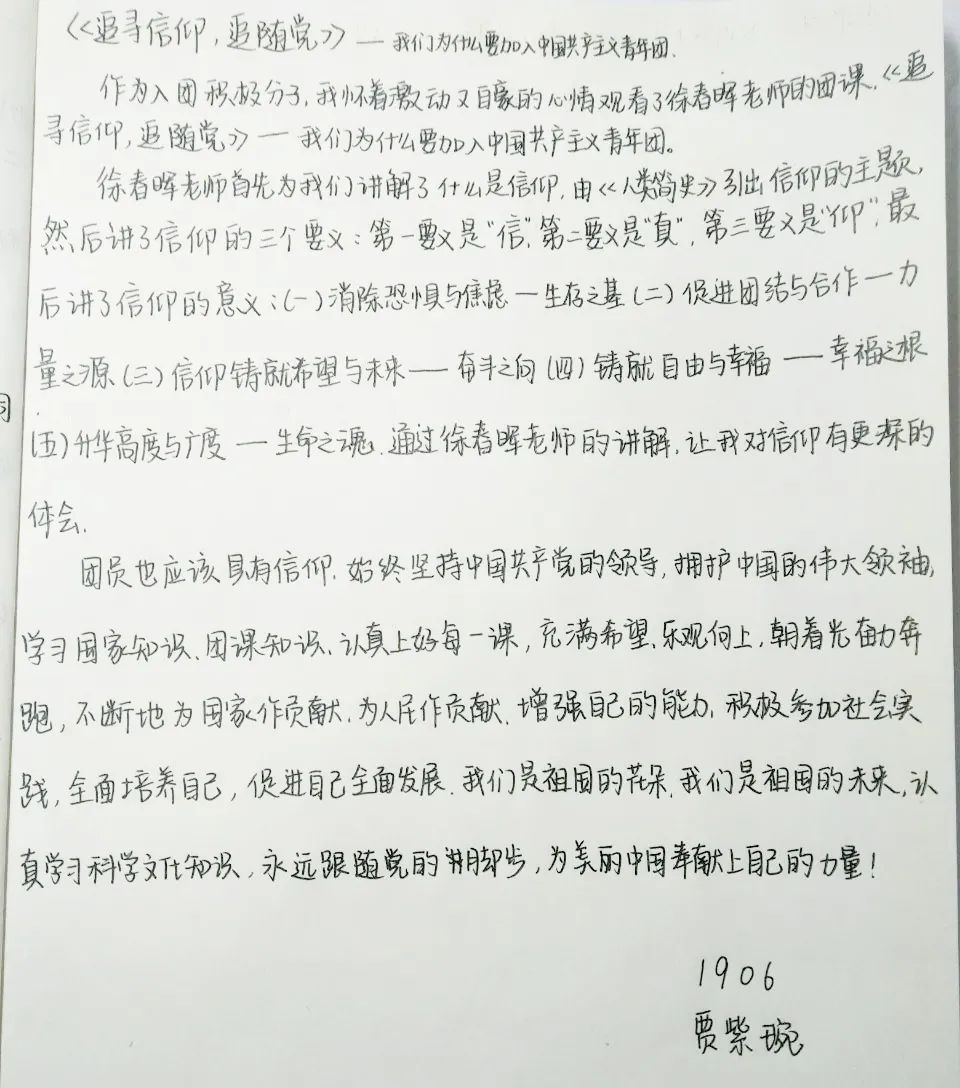 《追寻信仰,追随党》—我们为什么要加入中国共产主义青年团.
作为入团积极分子,我怀着激动又自豪的心情观看了徐春晖老师的团课.《追
寻信仰,追随党》—我们为什么要加入中国共产主义青年团。
徐春晖老师首先为我们讲解了什么是信仰,由《人类简史》引出信仰的主题,
然后讲了信仰的三个要义:第一要义是"信",第二要义是"真",第三要义是"仰",最
后讲了信仰的意义:(一)消除恐惧与焦虑—生存之基(二)促进团结与合作—力
量之源(三)信仰铸就希望与未来—奋斗之向(四)铸就自由与幸福—幸福之根
(五)升华高度与广度—生命之魂.通过徐春晖老师的讲解,让我对信仰有更深的
体会.
团员也应该具有信仰.始终坚持中国共产党的领导,拥护中国的伟大领袖,
学习国家知识、团课知识、认真上好每一课,充满希望、乐观向上,朝着光奋力奔
跑,不断地为国家作贡献.为人民作贡献.增强自己的能力,积极参加社会实
践,全面培养自己,促进自己全面发展.我们是祖国的花朵.我们是祖国的未来,认
真学习科学文化知识,永远跟随党的脚步,为美丽中国奉献上自己的力量!
1906
贾紫琬